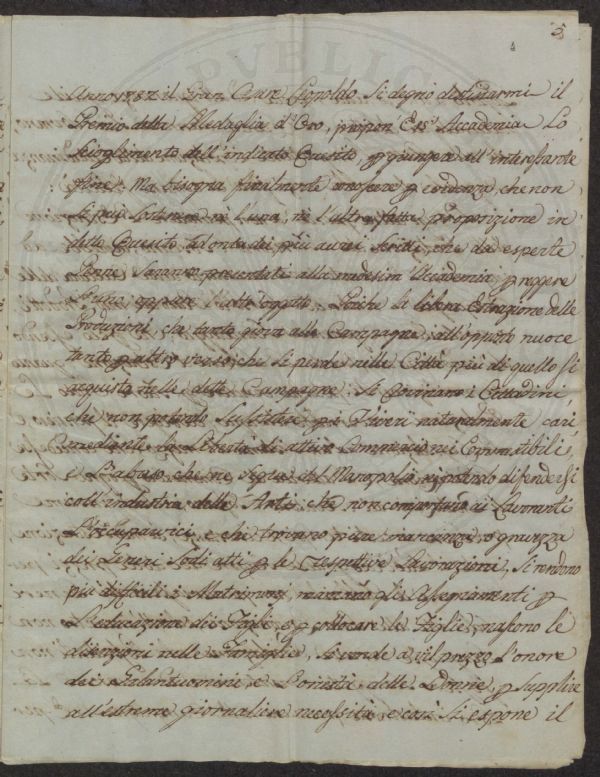 4
3
Anno 1787 il Gran Duca Leopoldo si degnò destinarmi il
Premio della Medaglia d'Oro, Accademia Lo
Scioglimento dell'indicato Quesito, p giungere all'interessante
fine: Ma bisogna finalmente p evidenza, che non
si può sostenere nè l'una, nè l'altra fatta proposizione in
detto Quesito ad onta dei più aurei scritti, che da esperte
Penne saranno presentati alla medesima Accademia p reggere
l'uno, oppure l'altro oggetto. Poichè la libera Estrazione delle
Produzioni, che tanto giova alle Campagne, all'opposto nuoce
tanto p altro verso, che si perde nelle Città più di quello si
acquista nelle dette Campagne: Si rovinano i Cittadini,
che non potendo sussistere p i Viveri naturalmente cari,
mediante la Libertà di attivo Commercio ne i Commestibili,
e l'abuso che ne segue del Monopolio, nè potendo difendersi
coll'industria delle Arti, che non ai Lavoranti
l'occuparvici, e che trovano pure mancanza, o gravezza
dei Generi sodi atti p le rispettive Lavorazioni, si rendono
più difficili i Matrimoni, mancano gli Assegnamenti p
l'educazione dei Figli, e p collocare le Figlie, nascono le
disenzioni nelle Famiglie, si vende a vil prezzo l'onore
dei Galantuomini e l'onestà delle Donne, p supplire
all'estreme giornaliere necessità, e così si espone il